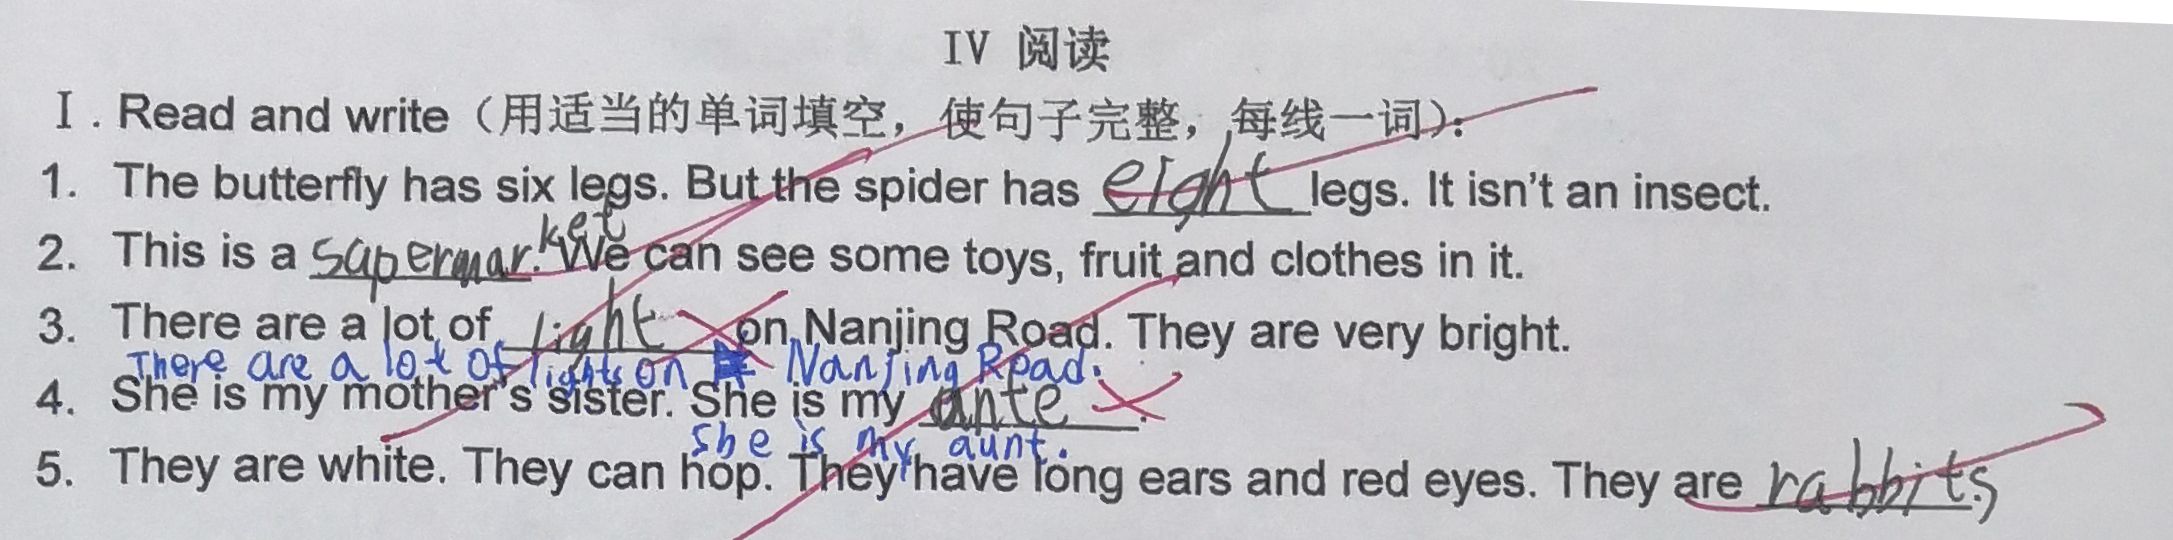 IV 阅读
I. Read and write（用适当的单词填空，使句子完整，每线一词）:
1. The butterfly has six legs. But the spider has eight legs. It isn't an insect.
2. This is a sapermarket. We can see some toys, fruit and clothes in it.
3. There are a lot of light on Nanjing Road. They are very bright.
There are a lot of lights on Nanjing Road.
4. She is my mother's sister. She is my ante.
She is my aunt.
5. They are white. They can hop. They have long ears and red eyes. They are rabbits